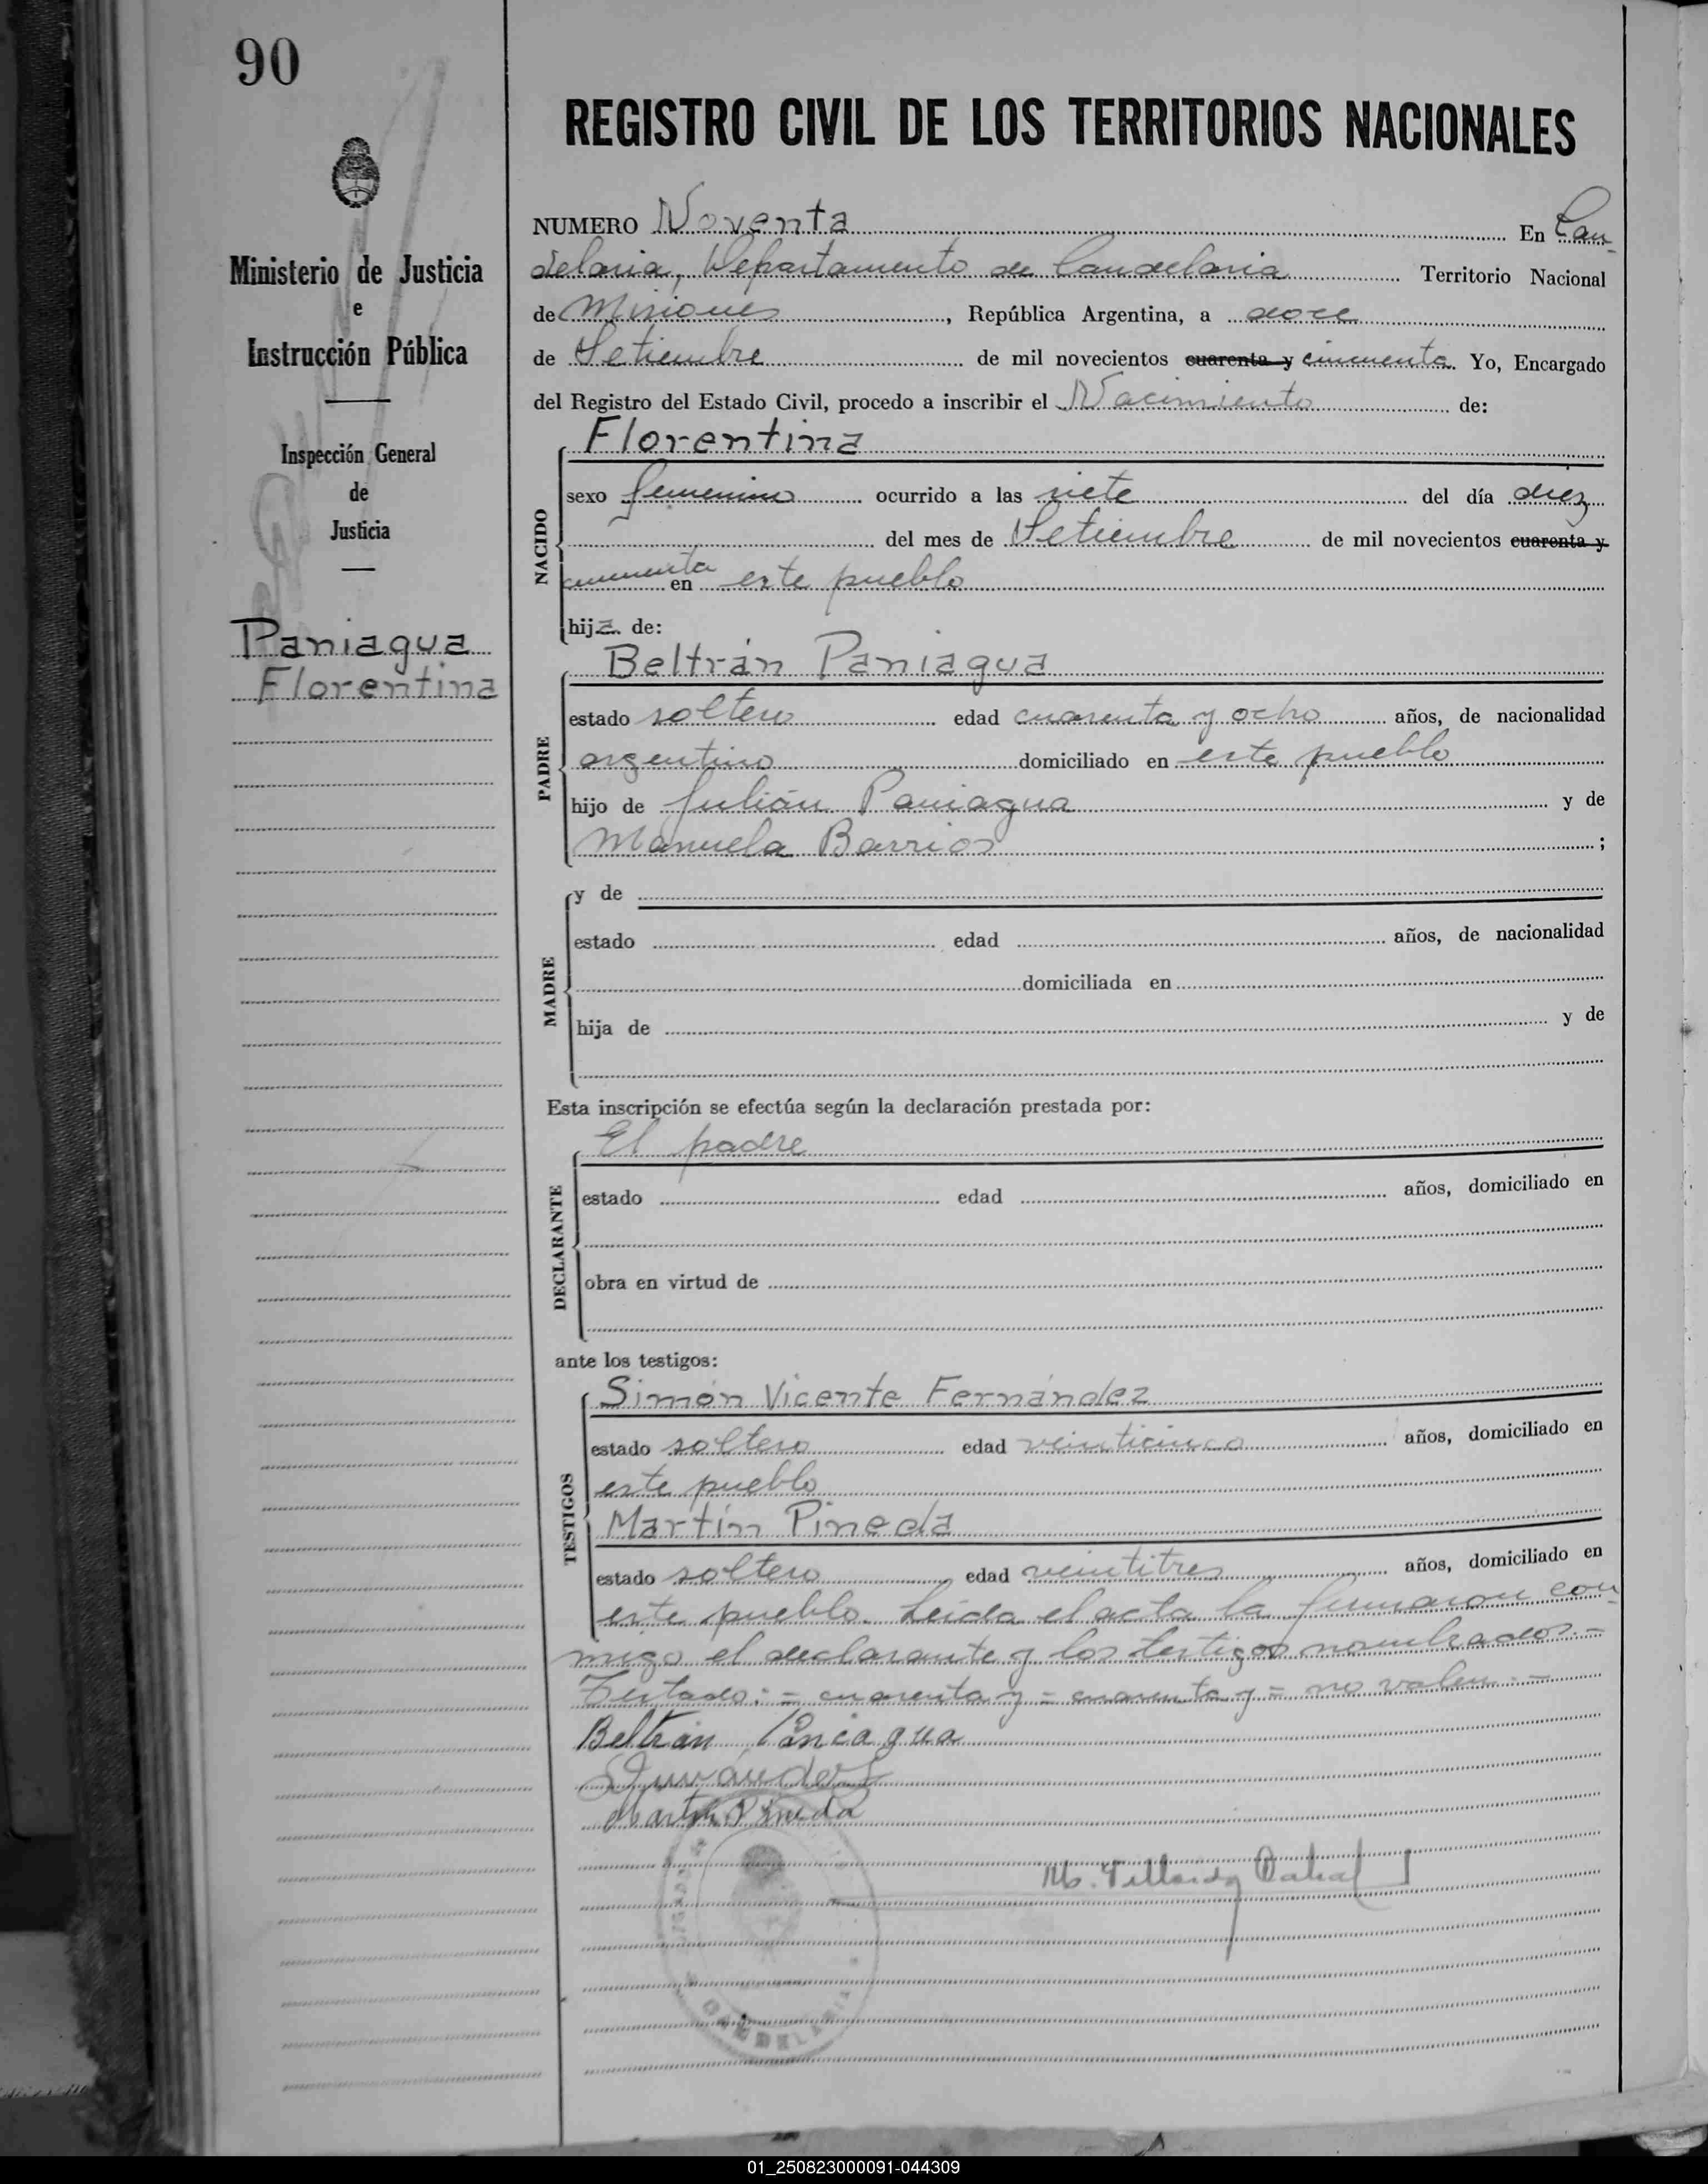 90
REGISTRO CIVIL DE LOS TERRITORIOS NACIONALES
Ministerio de Justicia
e
Instrucción Pública
Inspección General
de
Justicia
Paniagua
Florentina
NUMERO Noventa En Can-
delaria, Departamento de Candelaria Territorio Nacional
de Misiones, República Argentina, a doce
de Setiembre de mil novecientos cuarenta y cincuenta. Yo, Encargado
del Registro del Estado Civil, procedo a inscribir el Nacimiento de:
NACIDO
Florentina
sexo femenino ocurrido a las siete del día diez
del mes de Setiembre de mil novecientos cuarenta y
cincuenta en este pueblo
hija de:
PADRE
Beltrán Paniagua
estado soltero edad cuarenta y ocho años, de nacionalidad
argentino domiciliado en este pueblo
hijo de Julián Paniagua y de
Manuela Barrios ;
MADRE
y de
estado edad años, de nacionalidad
domiciliada en
hija de y de
Esta inscripción se efectúa según la declaración prestada por:
DECLARANTE
El padre
estado edad años, domiciliado en
obra en virtud de
ante los testigos:
TESTIGOS
Simón Vicente Fernández
estado soltero edad veinticinco años, domiciliado en
este pueblo
Martín Pineda
estado soltero edad veintitres años, domiciliado en
este pueblo. Leida el acta la firmaron con-
migo el declarante y los testigos nombrados.=
Testado: = cuarenta y = cuarenta y = no valen.=
Beltrán Paniagua
Martin Pineda
CANDELARIA
01_250823000091-044309